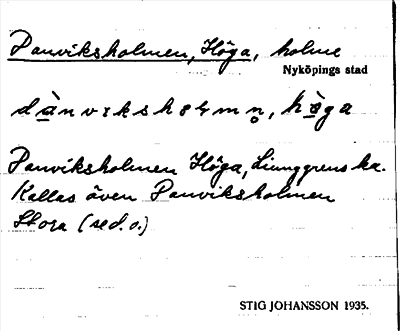 Danviksholmen, Höga, holme
Nyköpings stad
dànvıkshꝏlmn̥, hö̀ga
Danviksholmen Höga, Ljunggrens ka.
Kallas även Danviksholmen
Stora (se d. o.)
STIG JOHANSSON 1935.